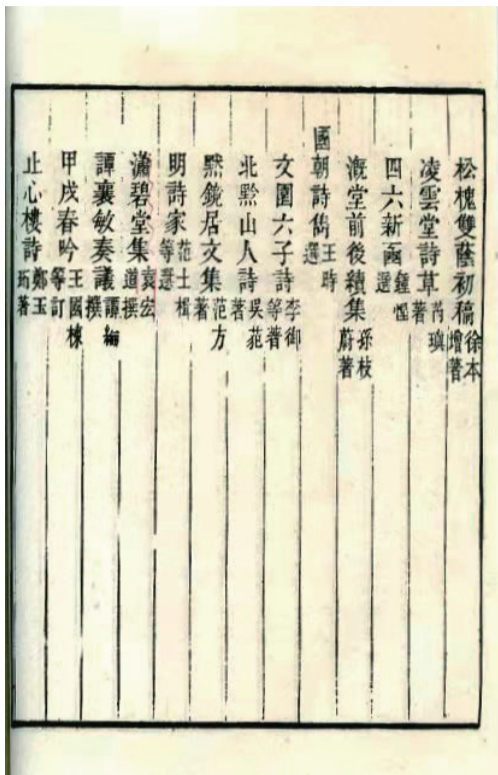 松槐雙蔭初稿徐本增著
凌雲堂詩草芮璵著
四六新函鍾惺選
漑堂前後續集孫枝蔚著
國朝詩雋王時選
文園六子詩李御等著
北黟山人詩吳菀著
默鏡居文集范方著
明詩家范士楫等選
瀟碧堂集袁宏道撰
譚襄敏奏議譚綸撰
甲戌春吟王國棟等訂
止心樓詩鄭玉珩著